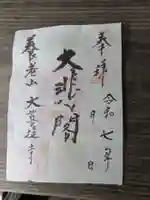 奉拝
令和七年
月 日
大悲閣
養老山 大菩提寺